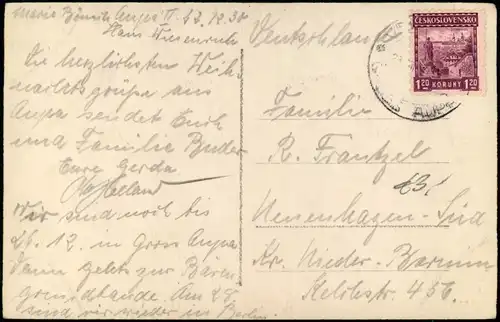 Marie Bönsch Aupa II 23.12.30
Hans Wiesenruh
Die herzlichsten Weih-
nachtsgrüße aus
Aupa sendet Euch
und Familie Buder
Eure Gerda
Wir sind noch bis
26.12. in Gross Aupa
Dann gehts zur Bären-
grundbaude. Am 28.
sind wir wieder in Berlin.
Deutschland
ČESKOSLOVENSKO
1.20 KORUNY 1.20
Familie
R. Frantzel
Neuenhagen-Süd
Kr. Nieder-Barnim
Kelchstr. 456.